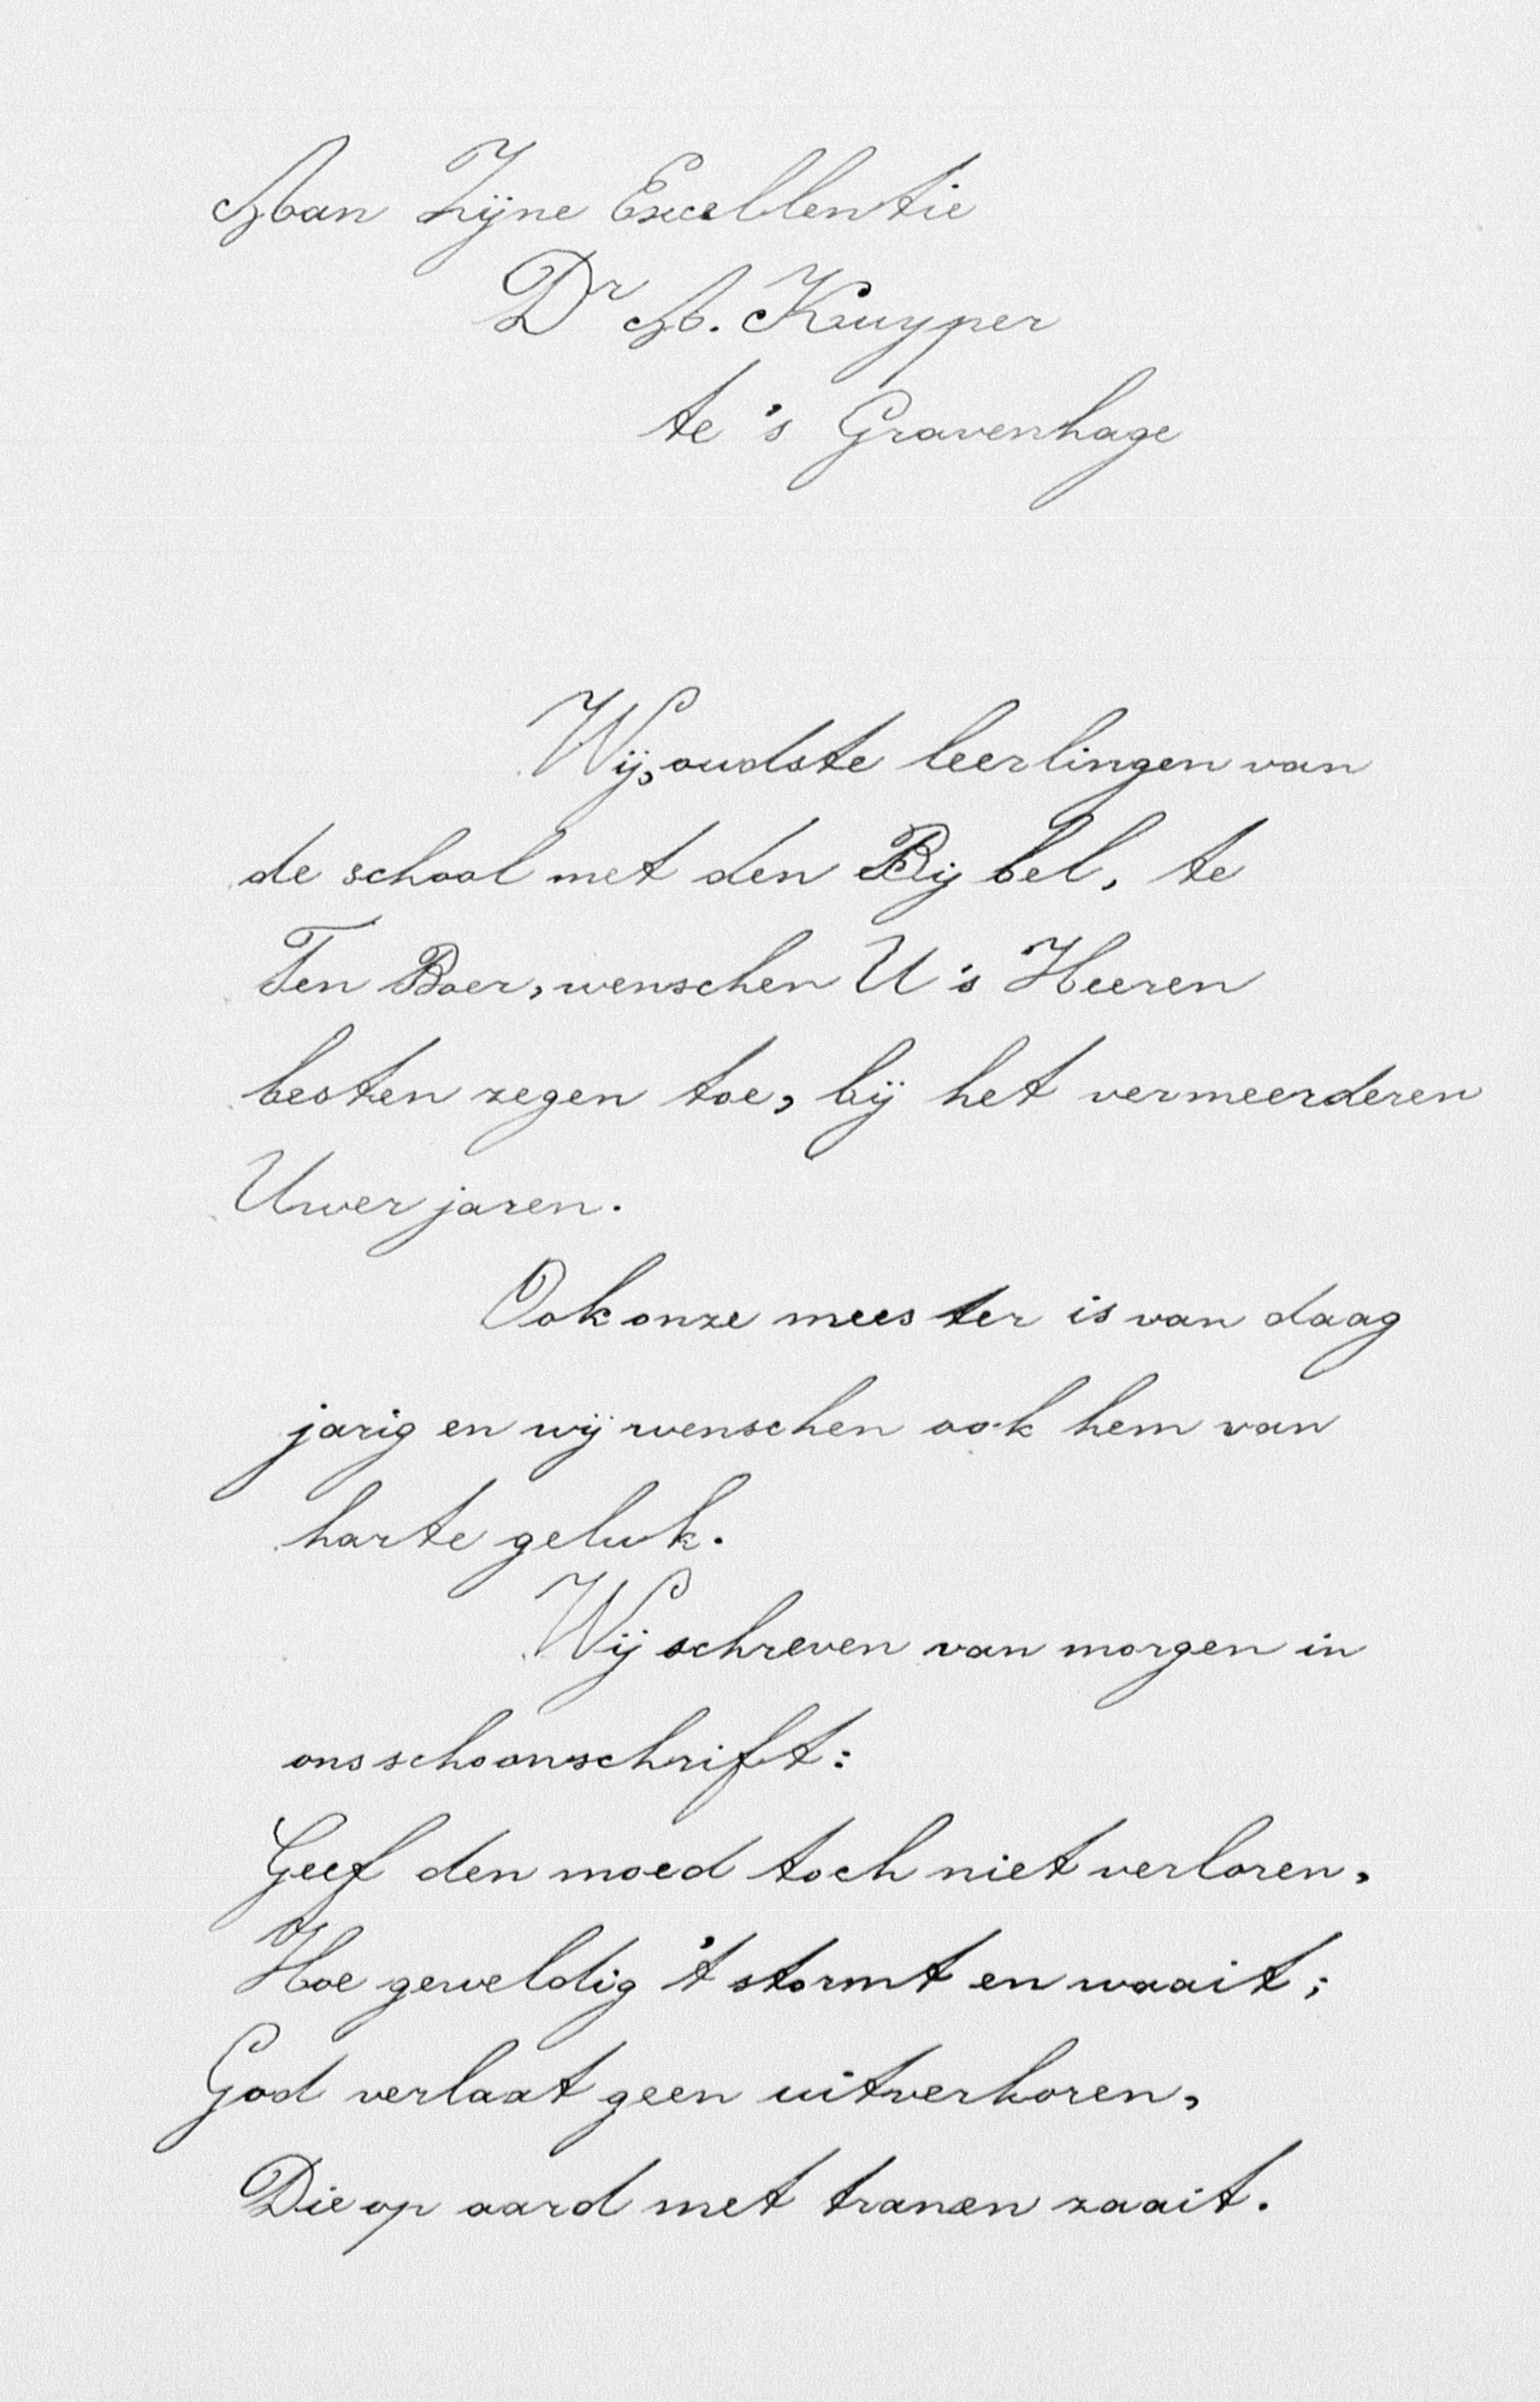 Aan Zijne Excellentie
Dr A. Kuyper
te 's Gravenhage
Wij, oudste leerlingen van
de school met den Bijbel, te
Ten Boer, wenschen U 's Heeren
besten zegen toe, bij het vermeerderen
Uwer jaren.
Ook onze meester is van daag
jarig en wij wenschen ook hem van
harte geluk.
Wij schreven van morgen in
ons schoonschrift:
Geef den moed toch niet verloren,
Hoe geweldig 't stormt en waait;
God verlaat geen uitverkoren,
Die op aard met tranen zaait.